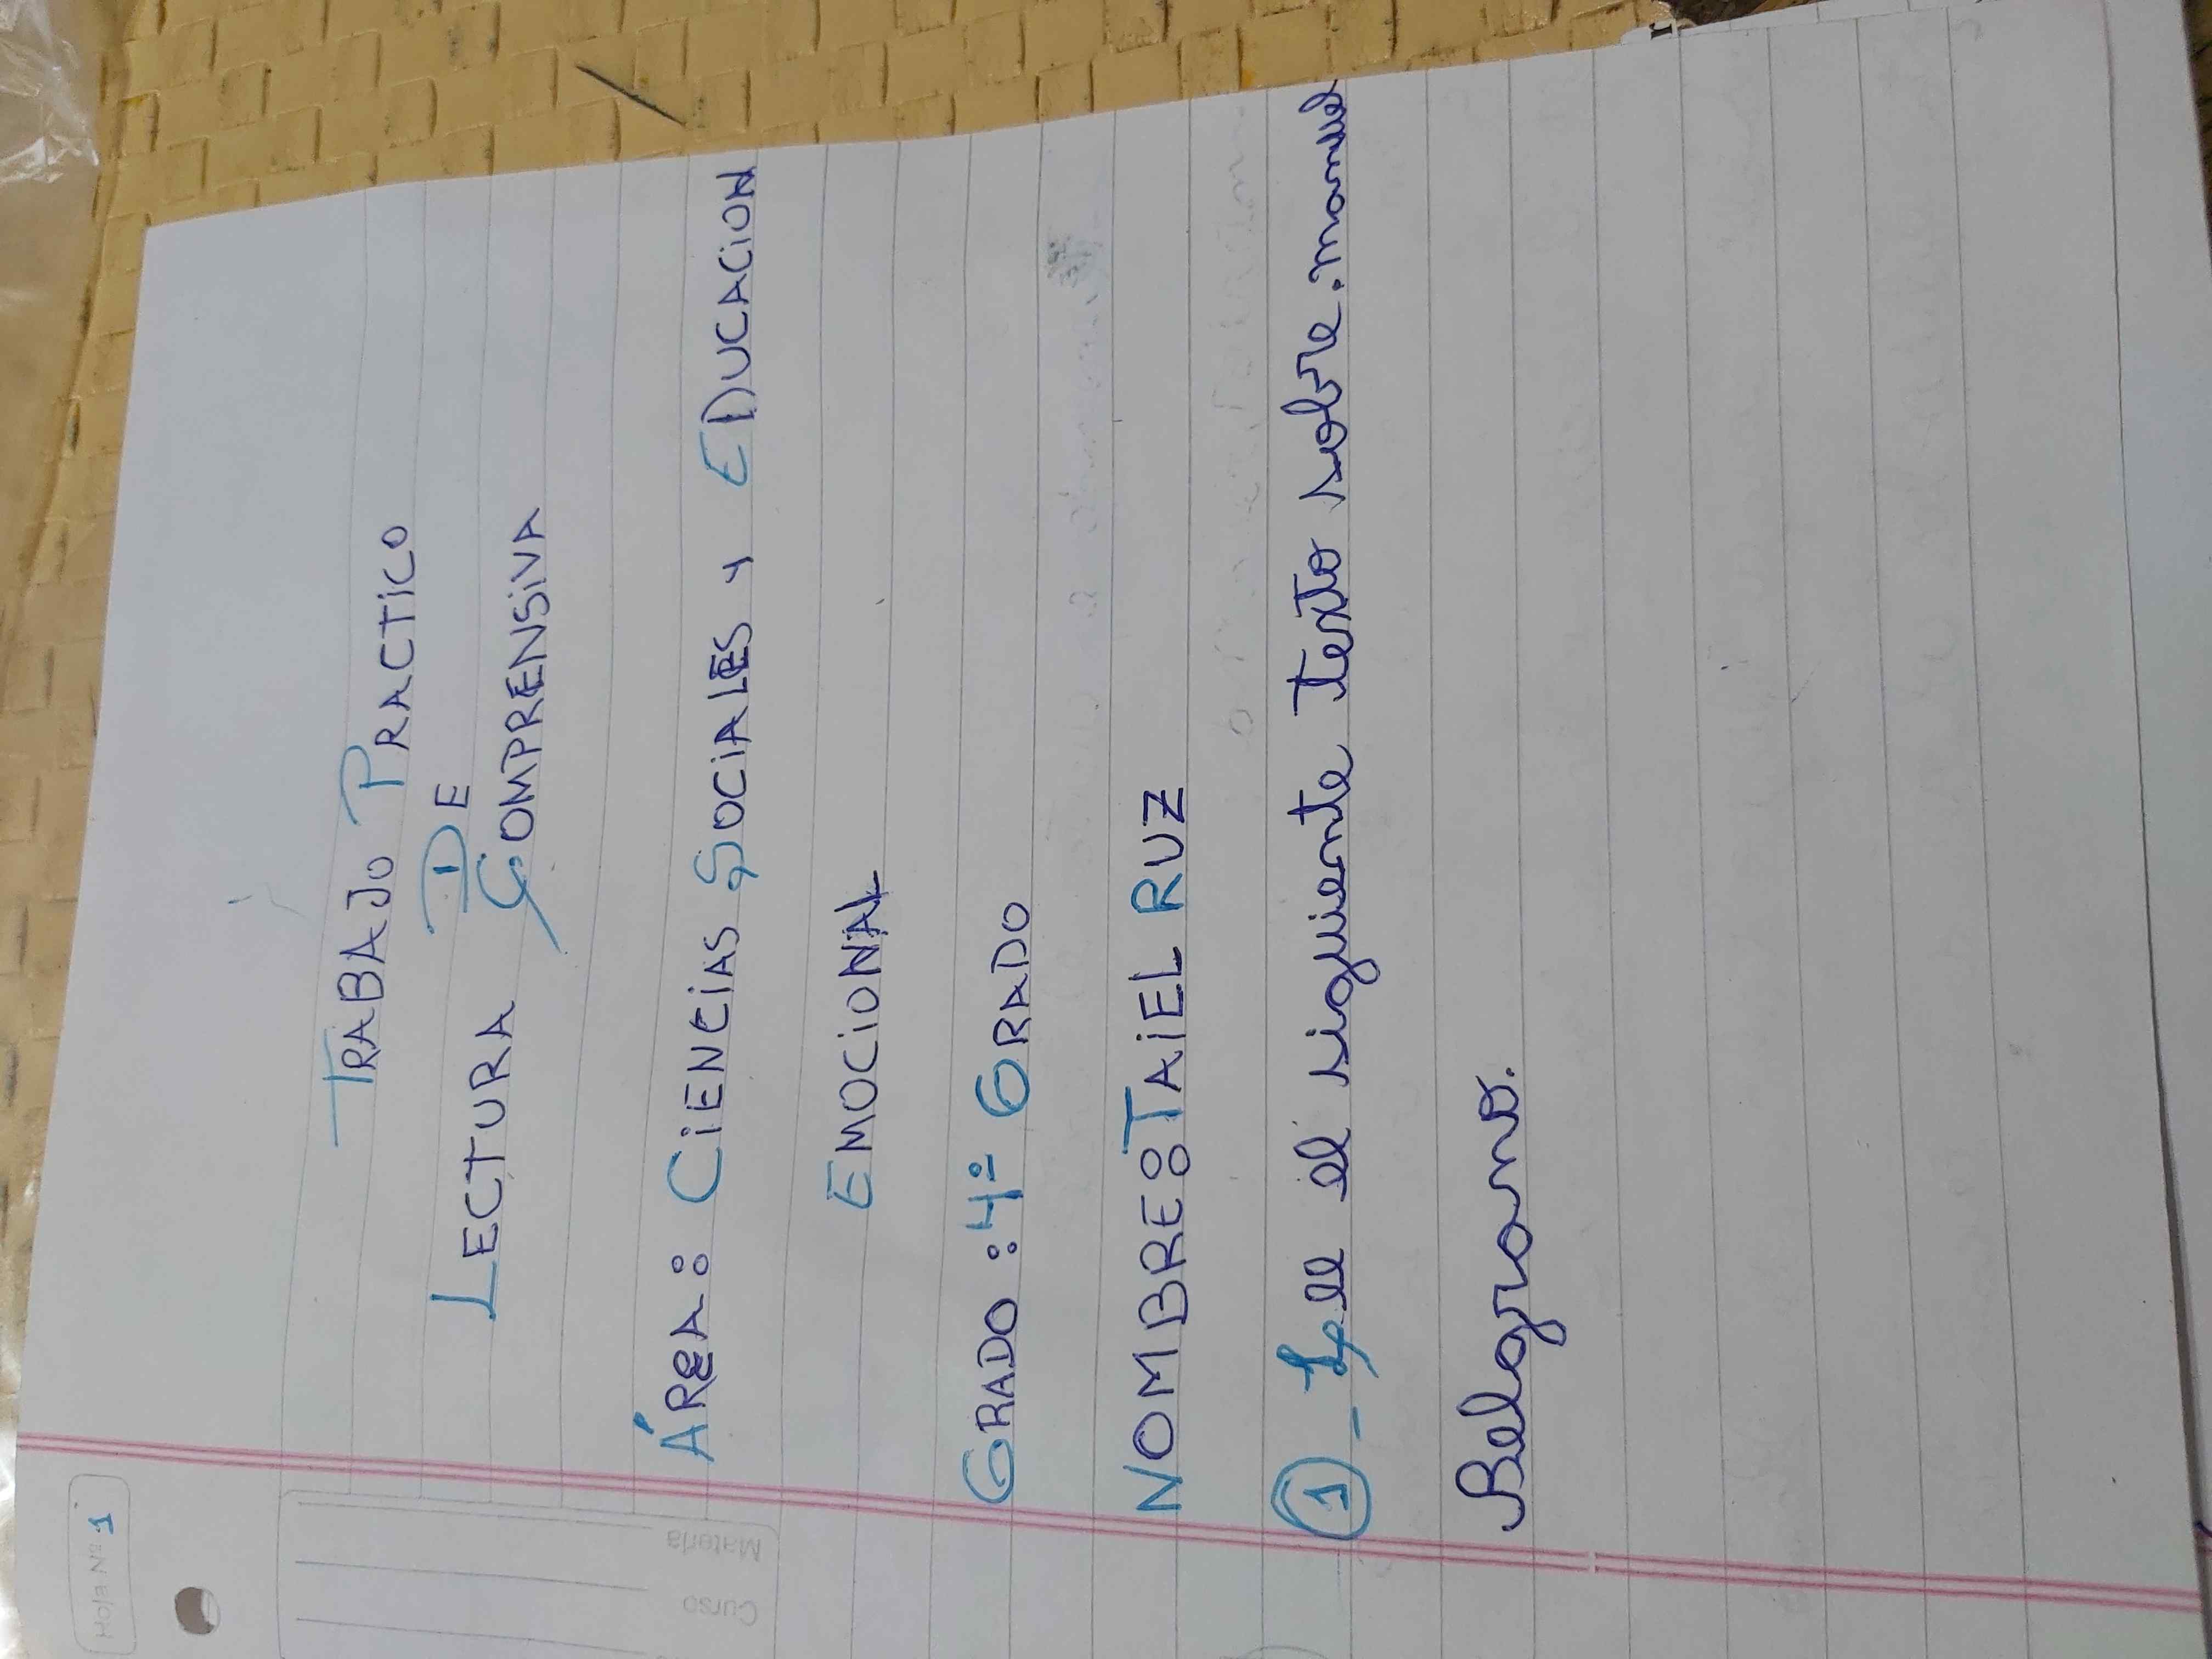 Hoja Nº 1
Materia
Curso
TRABAJO PRACTICO
DE
LECTURA COMPRENSIVA
ÁREA: CIENCIAS SOCIALES Y EDUCACION
EMOCIONAL
GRADO: 4º GRADO
NOMBRE: TAIEL RUZ
1- Lee el siguiente texto sobre: manuel
Belgrano.